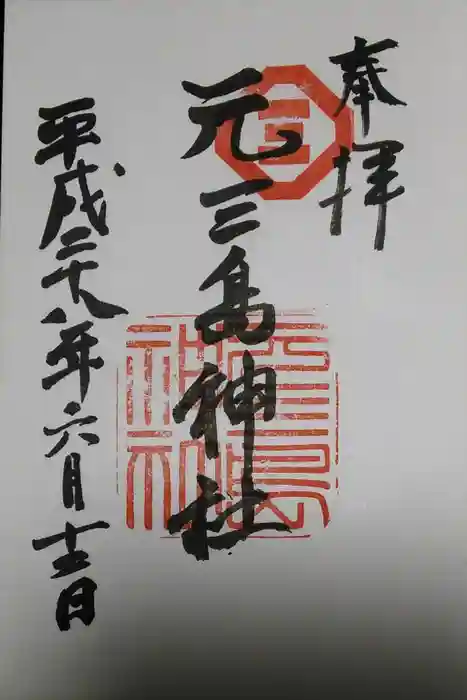 奉拝
元三島神社
平成二十八年六月十二日
三
元三島
神社